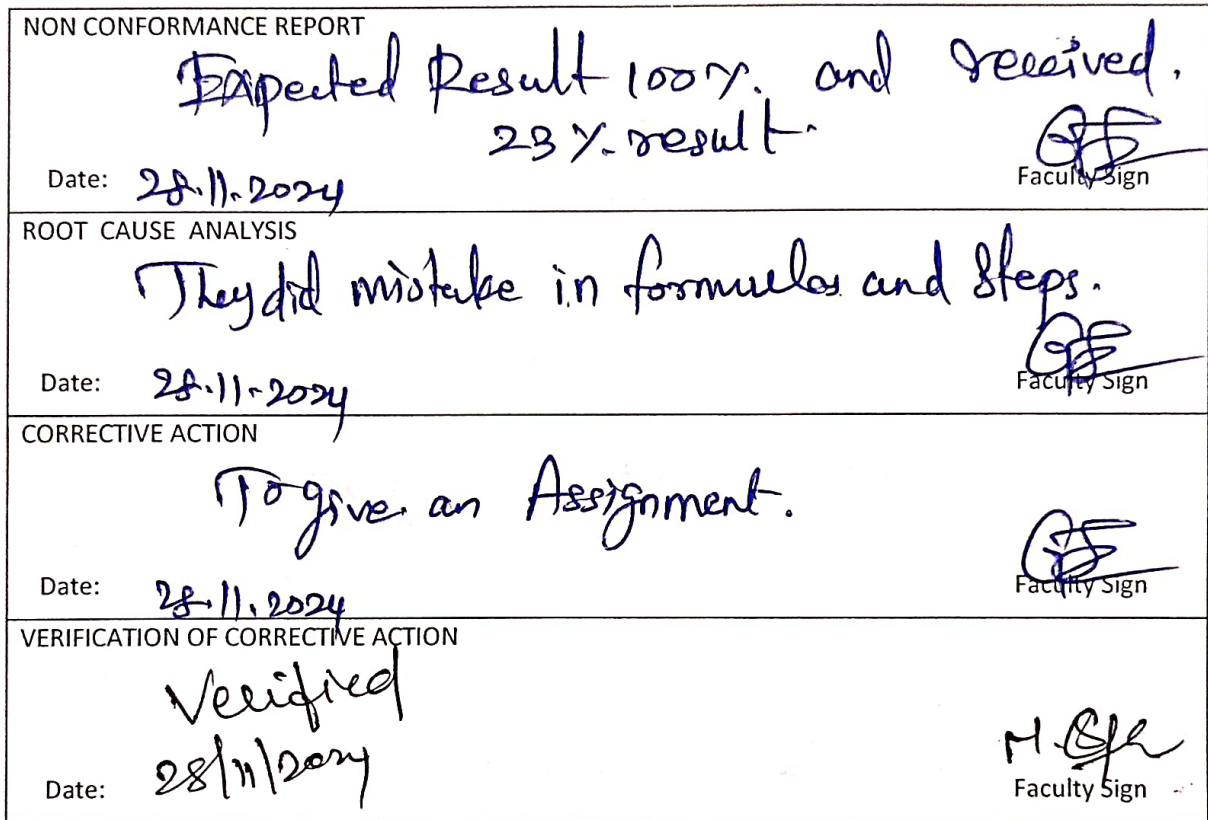 NON CONFORMANCE REPORT
Expected Result 100%. and received.
23%. result.
Date: 28.11.2024
Faculty Sign
ROOT CAUSE ANALYSIS
They did mistake in formulas and steps.
Date: 28.11.2024
Faculty Sign
CORRECTIVE ACTION
To give an Assignment.
Date: 28.11.2024
Faculty Sign
VERIFICATION OF CORRECTIVE ACTION
Verified
Date: 28/11/2024
Faculty Sign